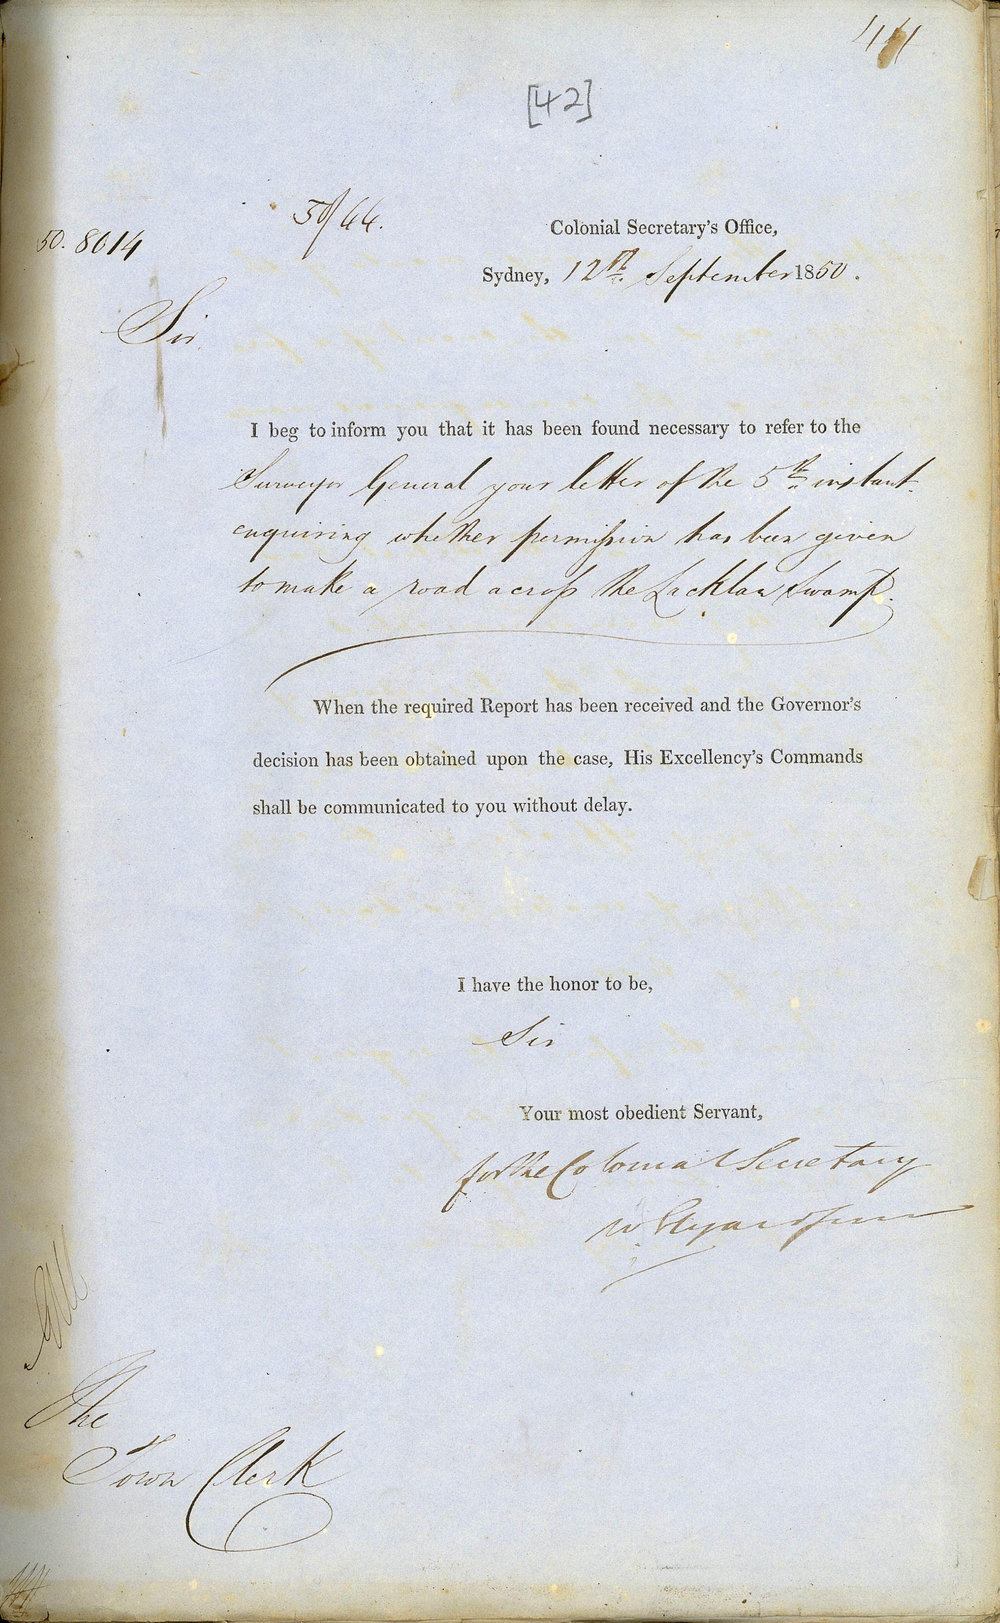 44
[42]
50/44.
50. 8014
Colonial Secretary's Office,
Sydney, 12th. September 1850.
Sir
I beg to inform you that it has been found necessary to refer to the
Surveyor General your letter of the 5th instant
enquiring whether permission has been given
to make a road across the Lachlan Swamp.
When the required Report has been received and the Governor's
decision has been obtained upon the case, His Excellency's Commands
shall be communicated to you without delay.
I have the honor to be,
Sir
Your most obedient Servant,
for the Colonial Secretary
W. Elyard
The
Town Clerk